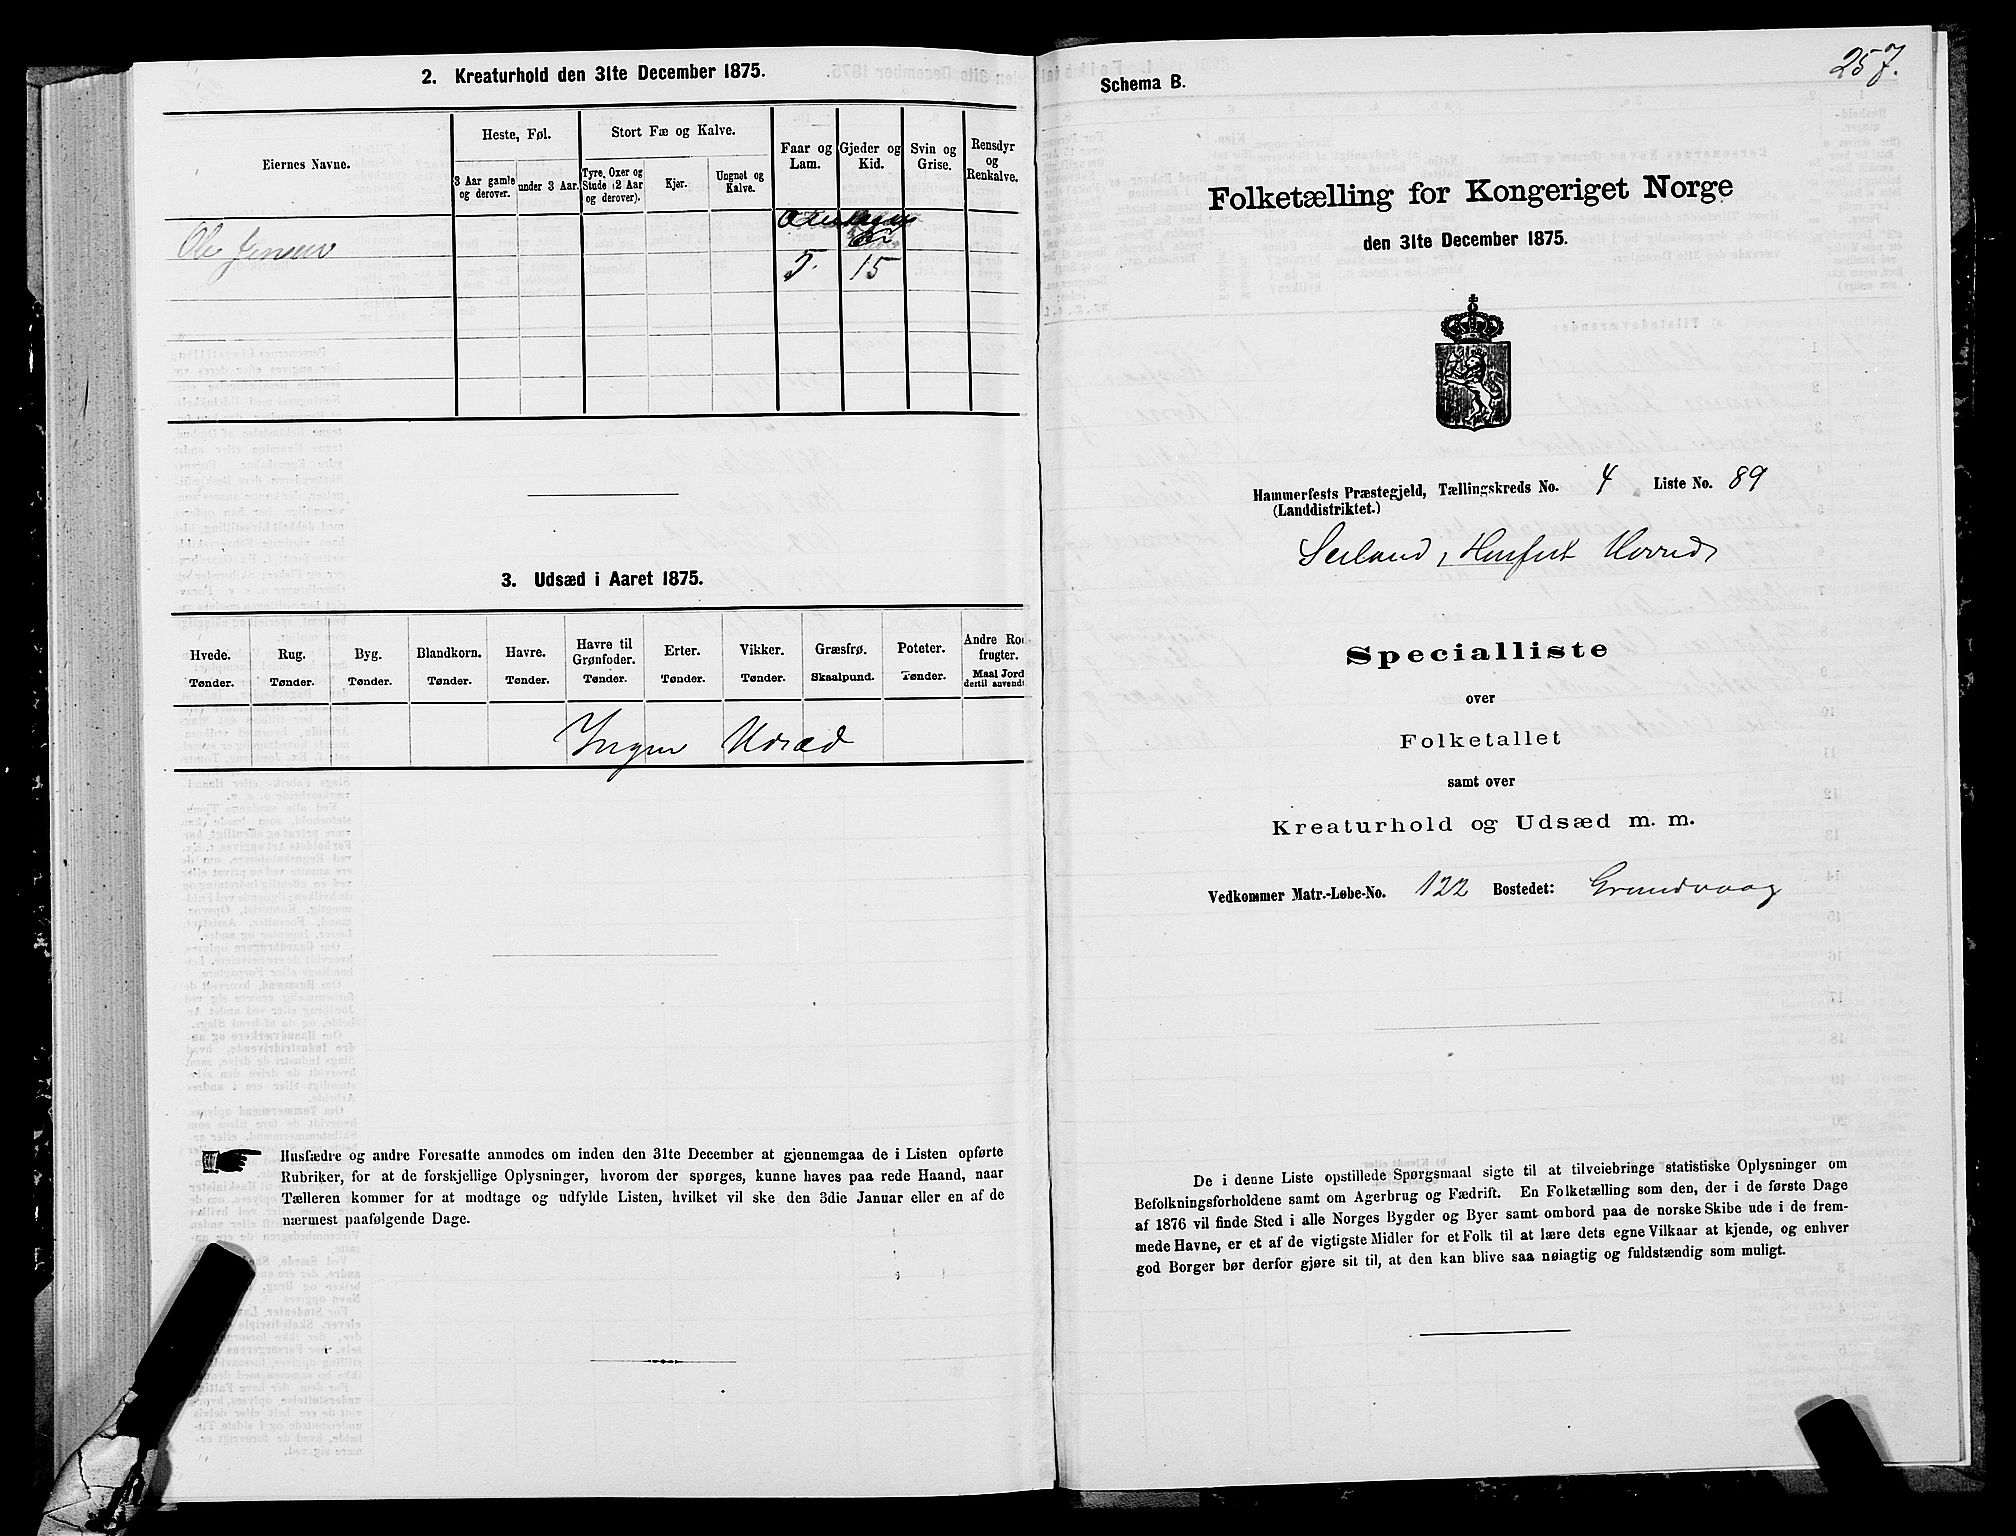 2. Kreaturhold den 31te December 1875.
Eiernes Navne.
Heste, Føl.
3 Aar gamle og derover.
under 3 Aar.
Stort Fæ og Kalve.
Tyre, Oxer og Stude (2 Aar og derover).
Kjør.
Ungnøt og Kalve.
Faar og Lam.
Gjeder og Kid.
Svin og Grise.
Rensdyr og Renkalve.
Ole Jensen
5. 15
3. Udsæd i Aaret 1875.
Hvede. Tønder.
Rug. Tønder.
Byg. Tønder.
Blandkorn. Tønder.
Havre. Tønder.
Havre til Grønfoder. Tønder.
Erter. Tønder.
Vikker. Tønder.
Græsfrø. Skaalpund.
Poteter. Tønder.
Andre Ro frugter. Maal Jord dertil anvendt
Ingen Udsæd
Husfædre og andre Foresatte anmodes om inden den 31te December at gjennemgaa de i Listen opførte
Rubriker, for at de forskjellige Oplysninger, hvorom der spørges, kunne haves paa rede Haand, naar
Tælleren kommer for at modtage og udfylde Listen, hvilket vil ske den 3die Januar eller en af de
nærmest paafølgende Dage.
257.
Schema B.
Folketælling for Kongeriget Norge
den 31te December 1875.
Hammerfests Præstegjeld, Tællingskreds No. 4 Liste No. 89
(Landdistriktet.)
Seiland,
Specialliste
over
Folketallet
samt over
Kreaturhold og Udsæd m. m.
Vedkommer Matr.-Løbe-No. 122 Bostedet: Grundvaag
De i denne Liste opstillede Spørgsmaal sigte til at tilveiebringe statistiske Oplysninger om
Befolkningsforholdene samt om Agerbrug og Fædrift. En Folketælling som den, der i de første Dage
af 1876 vil finde Sted i alle Norges Bygder og Byer samt ombord paa de norske Skibe ude i de frem-
mede Havne, er et af de vigtigste Midler for et Folk til at lære dets egne Vilkaar at kjende, og enhver
god Borger bør derfor gjøre sit til, at den kan blive saa nøiagtig og fuldstændig som muligt.